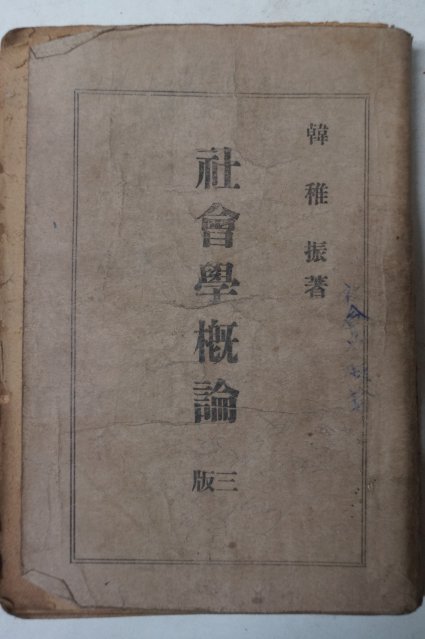 韓稚振著
社會學槪論
三版